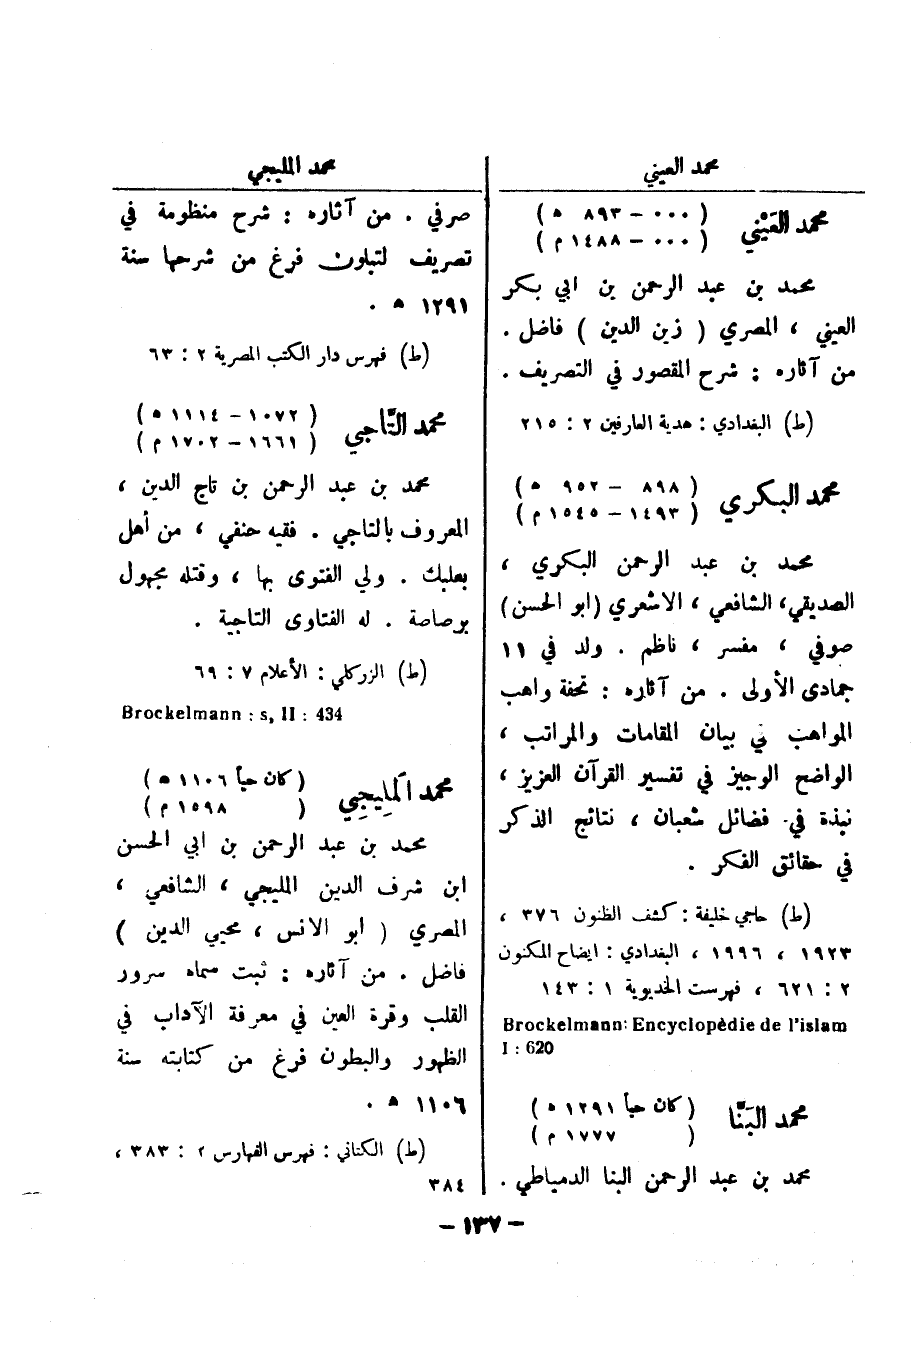 محمد العيني
محمد العَيْني
( ٠٠٠ – ٨٩٣ ه )
( ٠٠٠ – ١٤٨٨ م )
محمد بن عبد الرحمن بن ابي بكر
العيني ، المصري ( زين الدين ) فاضل .
من آثاره : شرح المقصور في التصريف .
(ط) البغدادي : هدية العارفين ٢ : ٢١٥
محمد البكري
( ٨٩٨ – ٩٥٢ ه )
( ١٤٩٣ – ١٥٤٥ م )
محمد بن عبد الرحمن البكري ،
الصديقي، الشافعي ، الاشعري (ابو الحسن)
صوفي ، مفسر ، ناظم . ولد في ١١
جمادى الأولى . من آثاره : تحفة واهب
المواهب في بيان المقامات والمراتب ،
الواضح الوجيز في تفسير القرآن العزيز ،
نبذة في فضائل شعبان ، نتائج الذكر
في حقائق الفكر .
(ط) حاجي خليفة : كشف الظنون ٣٧٦ ،
١٩٢٣ ، ١٩٩٦ ، البغدادي : ايضاح المكنون
٢ : ٦٢١ ، فهرست الخديوية ١ : ١٤٣
Brockelmann: Encyclopèdie de l'islam
I : 620
محمد البَنَّا
( كان حياً ١٢٩١ ه )
( ١٧٧٧ م )
محمد بن عبد الرحمن البنا الدمياطي .
محمد المليجي
صرفي . من آثاره : شرح منظومة في
تصريف لتبلون فرغ من شرحها سنة
١٢٩١ ه .
(ط) فهرس دار الكتب المصرية ٢ : ٦٣
محمد التَّاجي
( ١٠٧٢ – ١١١٤ ه )
( ١٦٦١ – ١٧٠٢ م )
محمد بن عبد الرحمن بن تاج الدين ،
المعروف بالتاجي . فقيه حنفي ، من أهل
بعلبك . ولي الفتوى بها ، وقتله مجهول
برصاصة . له الفتاوى التاجية .
(ط) الزركلي : الأعلام ٧ : ٦٩
Brockelmann : s, II : 434
محمد المَلِيجِي
( كان حياً ١١٠٦ ه )
( ١٥٩٨ م )
محمد بن عبد الرحمن بن ابي الحسن
ابن شرف الدين المليجي ، الشافعي ،
المصري ( ابو الانس ، محيي الدين )
فاضل . من آثاره : ثبت سماه سرور
القلب وقرة العين في معرفة الآداب في
الظهور والبطون فرغ من كتابته سنة
١١٠٦ ه .
(ط) الكتاني : فهرس الفهارس ٢ : ٣٨٣ ،
٣٨٤
– ١٣٧ –